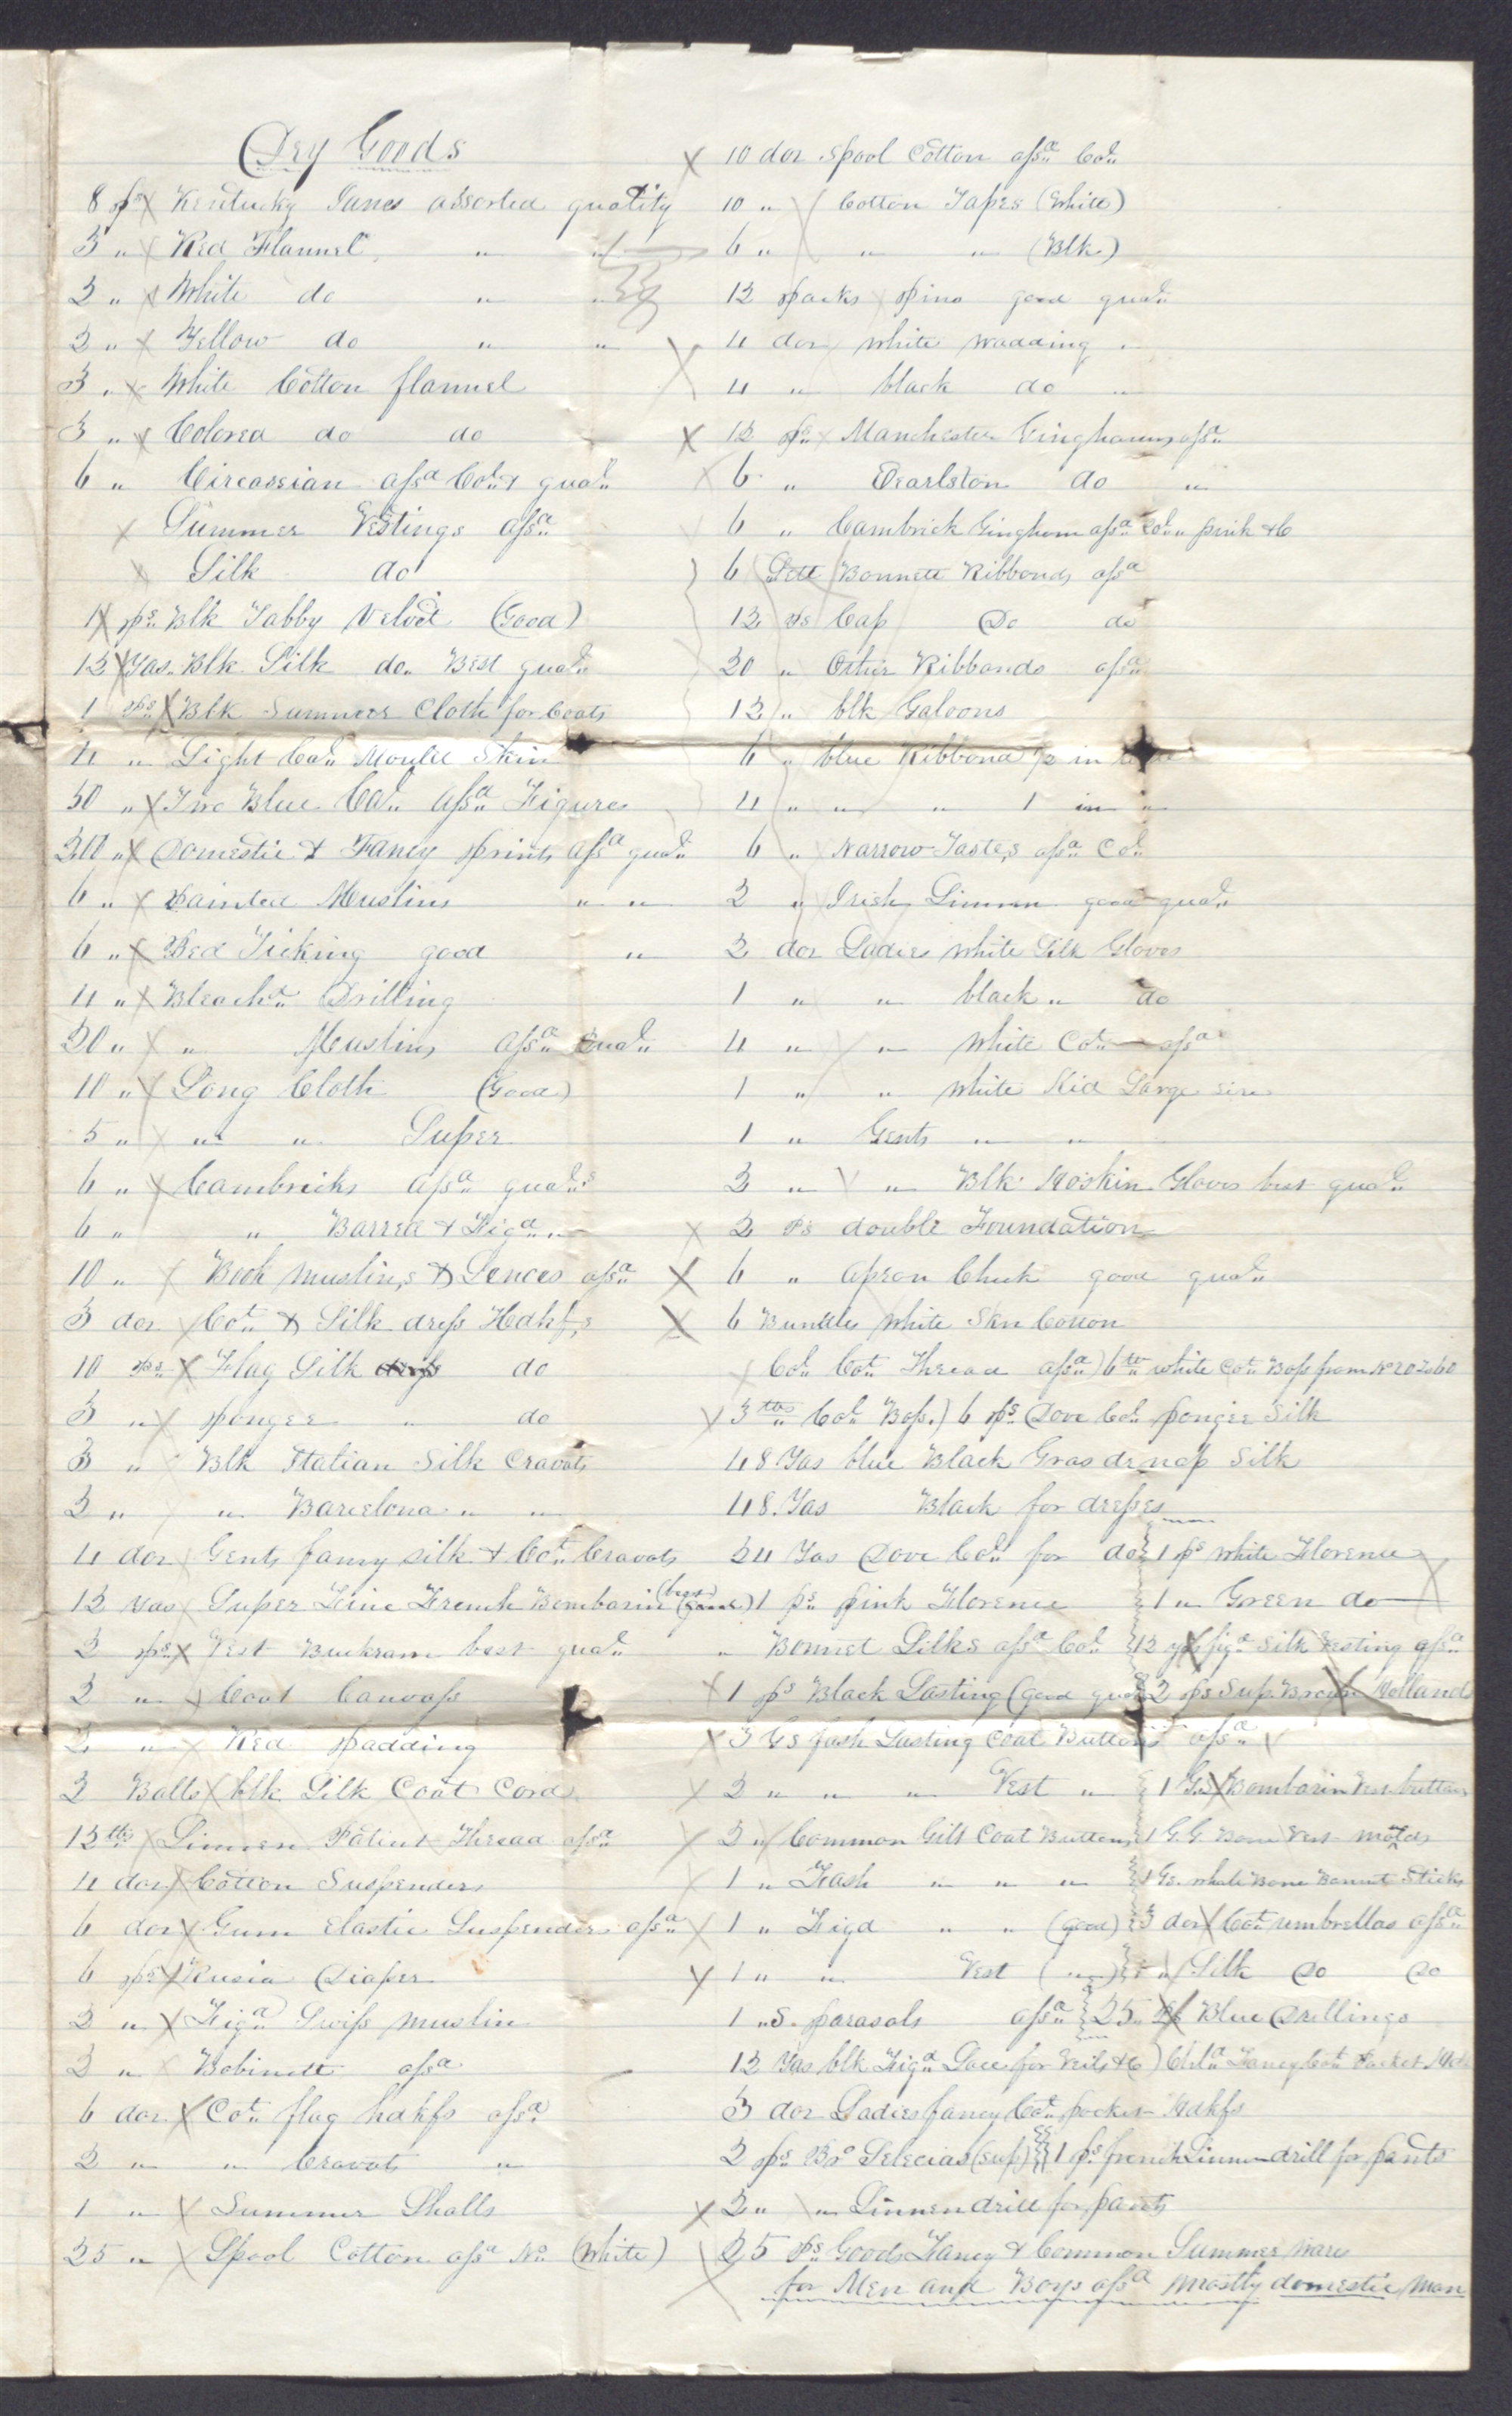 Dry Goods
8 ps Kentucky Janes assorted quality
3 " Red Flannel " "
2 " White do " "
2 " Yellow do " "
3 " White Cotton flannel
3 " Colored do do
6 " Circassian assd Cold & qual
Summer Vestings assd
Silk do
1 ps Blk Tabby Velvet (Good)
12 Yds Blk Silk do Best qual
1 ps Blk Summer Cloth for Coats
4 " Light Cold Mould Skin
50 " Two Blue Cal assd Figures
20 " Domestic & Fancy prints assd qual
6 " Painted Muslins " "
6 " Bed Ticking good "
4 " Bleachd Drilling
20 " " Muslins assd Qual
10 " Long Cloth (Good)
5 " " " Super
6 " Cambricks assd quals
6 " " Barred & Figd "
10 " Book muslins & Lences assd
3 doz Cot & Silk dress Hdkfs
10 ps Flag Silk do
3 " pongee " do
3 " Blk Italian Silk Cravats
2 " " Barcelona " "
4 doz Gents fancy silk & Cot Cravats
12 yds Super Fine French Bombazin (best)
2 ps Vest Buckram best qual
2 " Coat Canvass
2 " Red padding
2 Bolts blk Silk Coat Cord
12 lbs Linnen Patent Thread assd
4 doz Cotton Suspenders
6 doz Gum Elastic Suspenders assd
6 ps Rusia Diaper
2 " Figd Swiss muslin
2 " Bobinett assd
6 doz Cot flag hdkfs assd
2 " " Cravats "
1 " Summer Shalls
25 " Spool Cotton assd No (White)
10 doz Spool Cotton assd Col
10 " Cotton Tapes (White)
6 " " " (Blk)
12 packs pins good qual
4 doz white wadding "
4 " black do "
12 ps Manchester Ginghams assd
6 " Earlston do "
6 " Cambrick Gingham assd Col pink &c
6 Sett Bonnett Ribbonds assd
12 ps Cap Do do
20 " Other Ribbonds assd
12 " blk Galoons
6 " blue Ribbond 1/2 in
4 " " " 1 in "
6 " Narrow Tastes assd Col
2 " Irish Linnen good qual
2 doz Ladies white Silk Gloves
1 " " black " do
4 " " White Cot assd
1 " " White Kid Large size
1 " Gents " "
2 " " Blk Hoskin Gloves best qual
2 ps double Foundation
6 " Apron Check good qual
6 Bundles White Skn Cotton
Cold Cot Thread assd) 6 lbs white Cot Boss from No 20 to 60
3 lbs Cold Boss.) 6 ps Dove Cold pongee Silk
48 Yds blue Black Gras de nap Silk
48 Yds Black for dresses
24 Yds Dove Cold for do 1 ps White Florence
1 ps pink Florence 1 " Green do
" Bonnet Silks assd Cold 12 yds figd Silk Vesting assd
1 ps Black Lasting (Good qual 2 ps Sup Brown Holland
3 Gs fash Lasting Coat Buttons assd
2 " " " Vest " 1 Gs Bombazin Vest buttons
2 " Common Gilt Coat Buttons 1 G.G. Bone Vest molds
1 " Fash " " " 1 Gs. whale Bone Bonnet Sticks
1 " Figd " " (good) 3 doz Cot umbrellas assd
1 " " Vest ( " ) " Silk Do Do
1 " S. parasols assd 25 ps Blue Drillings
12 Yds blk Figd Lace for Veils &c) Fancy Cot Pocket
3 doz Ladies fancy Cot pocket Hdkfs
2 ps Bro Selecias (sup) 1 ps french Linnen drill for pants
2 " " Linnen drill for pants
25 ps Goods Fancy & Common Summer Ware
for Men and Boys assd mostly domestic Man